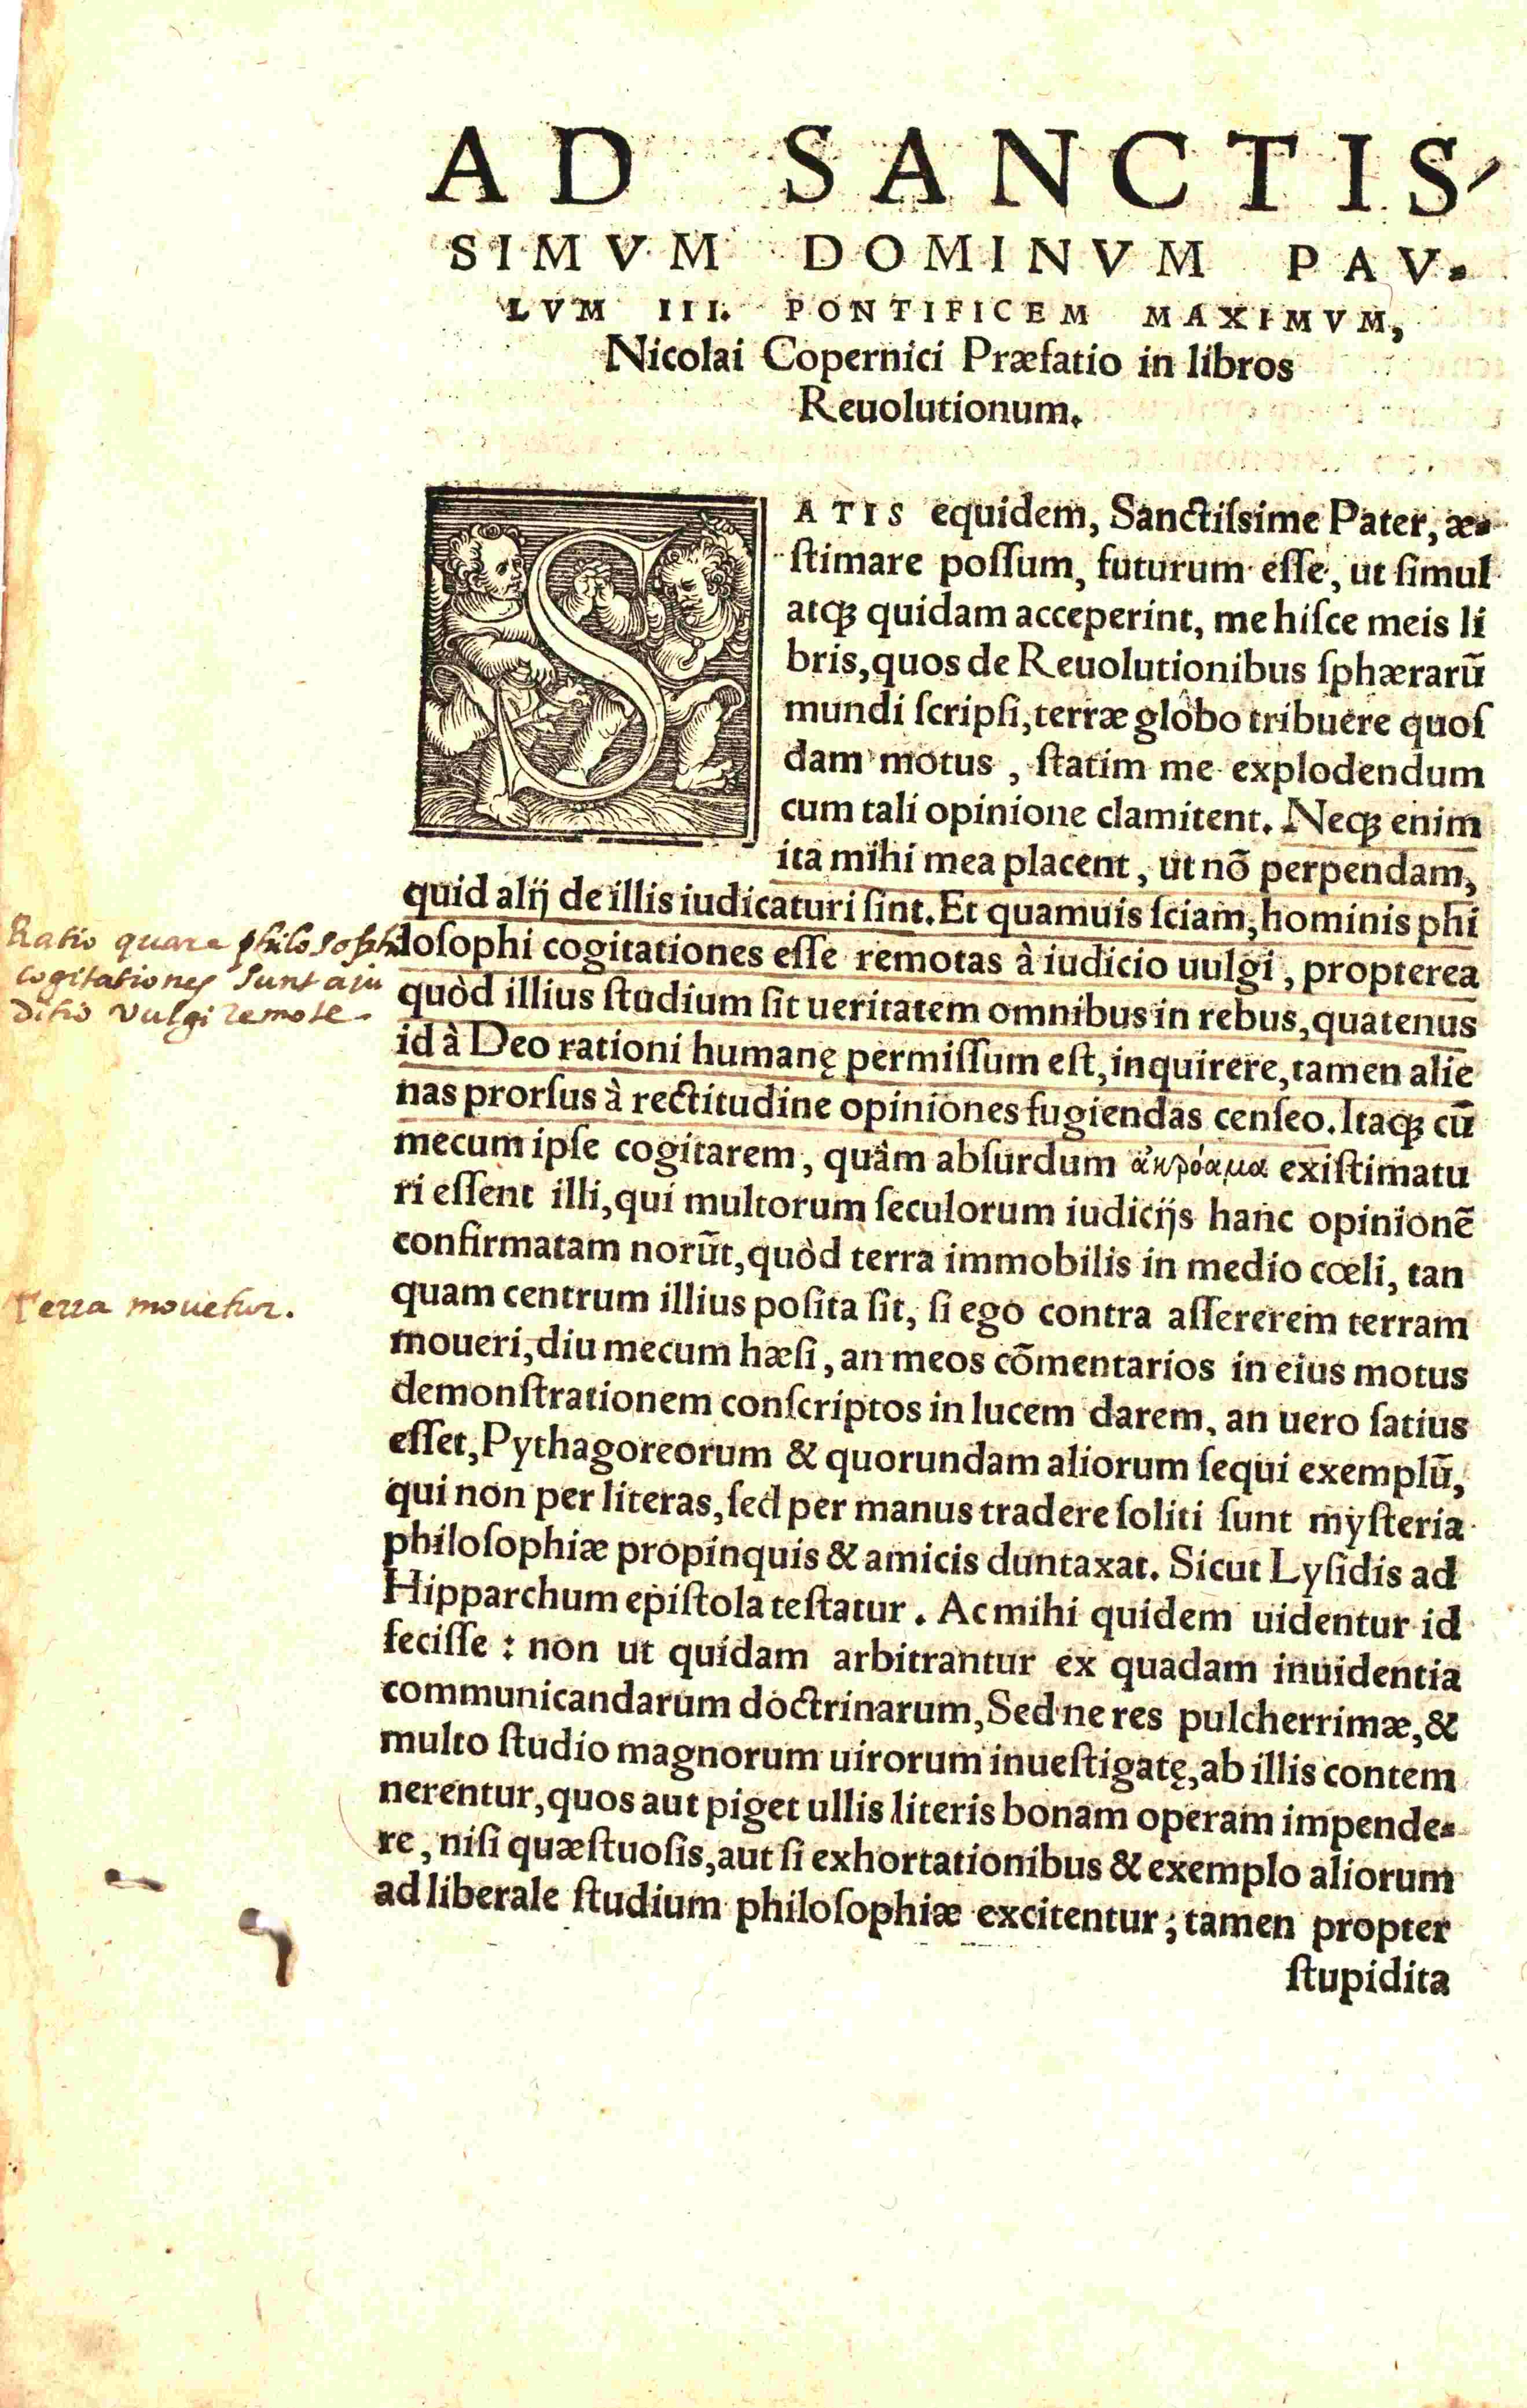 AD SANCTIS-
SIMVM DOMINVM PAV-
LVM III. PONTIFICEM MAXIMVM,
Nicolai Copernici Præfatio in libros
Reuolutionum.
SATIS equidem, Sanctiſsime Pater, æ-
ſtimare poſſum, futurum eſſe, ut ſimul
atq; quidam acceperint, me hiſce meis li
bris, quos de Reuolutionibus ſphærarũ
mundi ſcripſi, terræ globo tribuere quoſ
dam motus, ſtatim me explodendum
cum tali opinione clamitent. Neq; enim
ita mihi mea placent, ut nõ perpendam,
quid alij de illis iudicaturi ſint. Et quamuis ſciam, hominis phi
loſophi cogitationes eſſe remotas à iudicio uulgi, propterea
quòd illius ſtudium ſit ueritatem omnibus in rebus, quatenus
id à Deo rationi humanę permiſſum eſt, inquirere, tamen alie
nas prorſus à rectitudine opiniones fugiendas cenſeo. Itaq; cũ
mecum ipſe cogitarem, quàm abſurdum ἀκρόαμα exiſtimatu
ri eſſent illi, qui multorum ſeculorum iudicijs hanc opinionẽ
confirmatam norũt, quòd terra immobilis in medio cœli, tan
quam centrum illius poſita ſit, ſi ego contra aſſererem terram
moueri, diu mecum hæſi, an meos cõmentarios in eius motus
demonſtrationem conſcriptos in lucem darem, an uero ſatius
eſſet, Pythagoreorum & quorundam aliorum ſequi exemplũ,
qui non per literas, ſed per manus tradere ſoliti ſunt myſteria
philoſophiæ propinquis & amicis duntaxat. Sicut Lyſidis ad
Hipparchum epiſtola teſtatur. Ac mihi quidem uidentur id
feciſſe: non ut quidam arbitrantur ex quadam inuidentia
communicandarum doctrinarum, Sed ne res pulcherrimæ, &
multo ſtudio magnorum uirorum inueſtigatę, ab illis contem
nerentur, quos aut piget ullis literis bonam operam impende-
re, niſi quæſtuoſis, aut ſi exhortationibus & exemplo aliorum
ad liberale ſtudium philoſophiæ excitentur; tamen propter
ſtupidita
Ratio quare philosophi
cogitationes sunt a iu
ditio vulgi remote.
Terra mouetur.